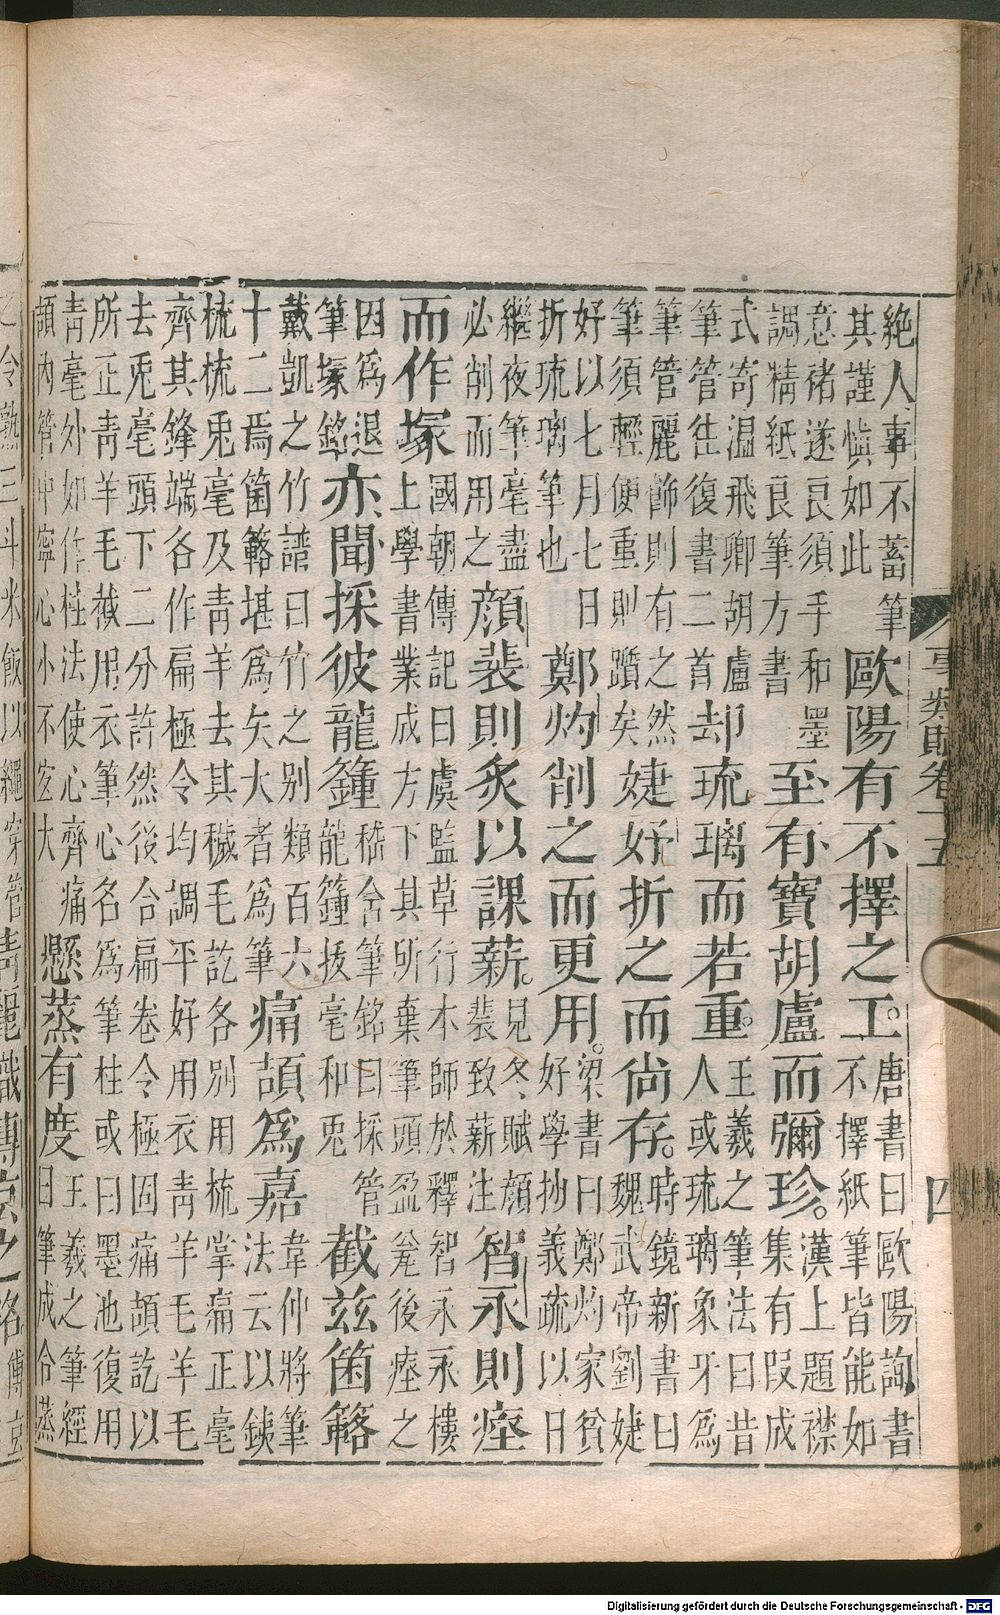 絶人事不蓄筆
其謹愼如此
歐陽有不擇之工。
唐書曰歐陽詢書
不擇紙筆皆能如
意褚遂良須手和墨
調精紙良筆方書
至有寶胡盧而彌珍。
漢上題襟
集有叚成
式寄温飛卿胡盧
筆管徃復書二首
却琉璃而若重。
王羲之筆法曰昔
人或琉璃象牙爲
筆管麗飾則有之然
筆須輕便重則躓矣
婕妤折之而尚存。
時鏡新書曰
魏武帝劉婕
妤以七月七日
折琉璃筆也
鄭灼削之而更用。
梁書曰鄭灼家貧
好學抄義疏以日
繼夜筆毫盡
必削而用之
顔裴則炙以課薪。
見冬賦顔
裴致薪注
智永則瘞
而作塚
國朝傳記曰虞監草行木師於釋智永永樓
上學書業成方下其所棄筆頭盈瓮後瘞之
因爲退
筆塚銘
亦聞採彼龍鍾
嵇含筆銘曰採管
龍鍾拔毫和兎
截兹箘簵
戴凱之竹譜曰竹之别類百六
十二焉箘簵堪爲矢大者爲筆
痛頡爲嘉
韋仲將筆
法云以鐵
梳梳兎毫及青羊去其穢毛訖各別用梳掌痛正毫
齊其鋒端各作扁極令均調平好用衣青羊毛羊毛
去兎毫頭下二分許然後合扁卷令極固痛頡訖以
所正青羊毛截用衣筆心名爲筆柱或曰墨池復用
青毫外如作柱法使心齊痛
頡内管中寧心小不宜大
懸蒸有度
王羲之筆經
曰筆成合蒸
之令熟三斗米飯以繩穿管
事類賦卷十五
四
Digitalisierung gefördert durch die Deutsche Forschungsgemeinschaft - DFG